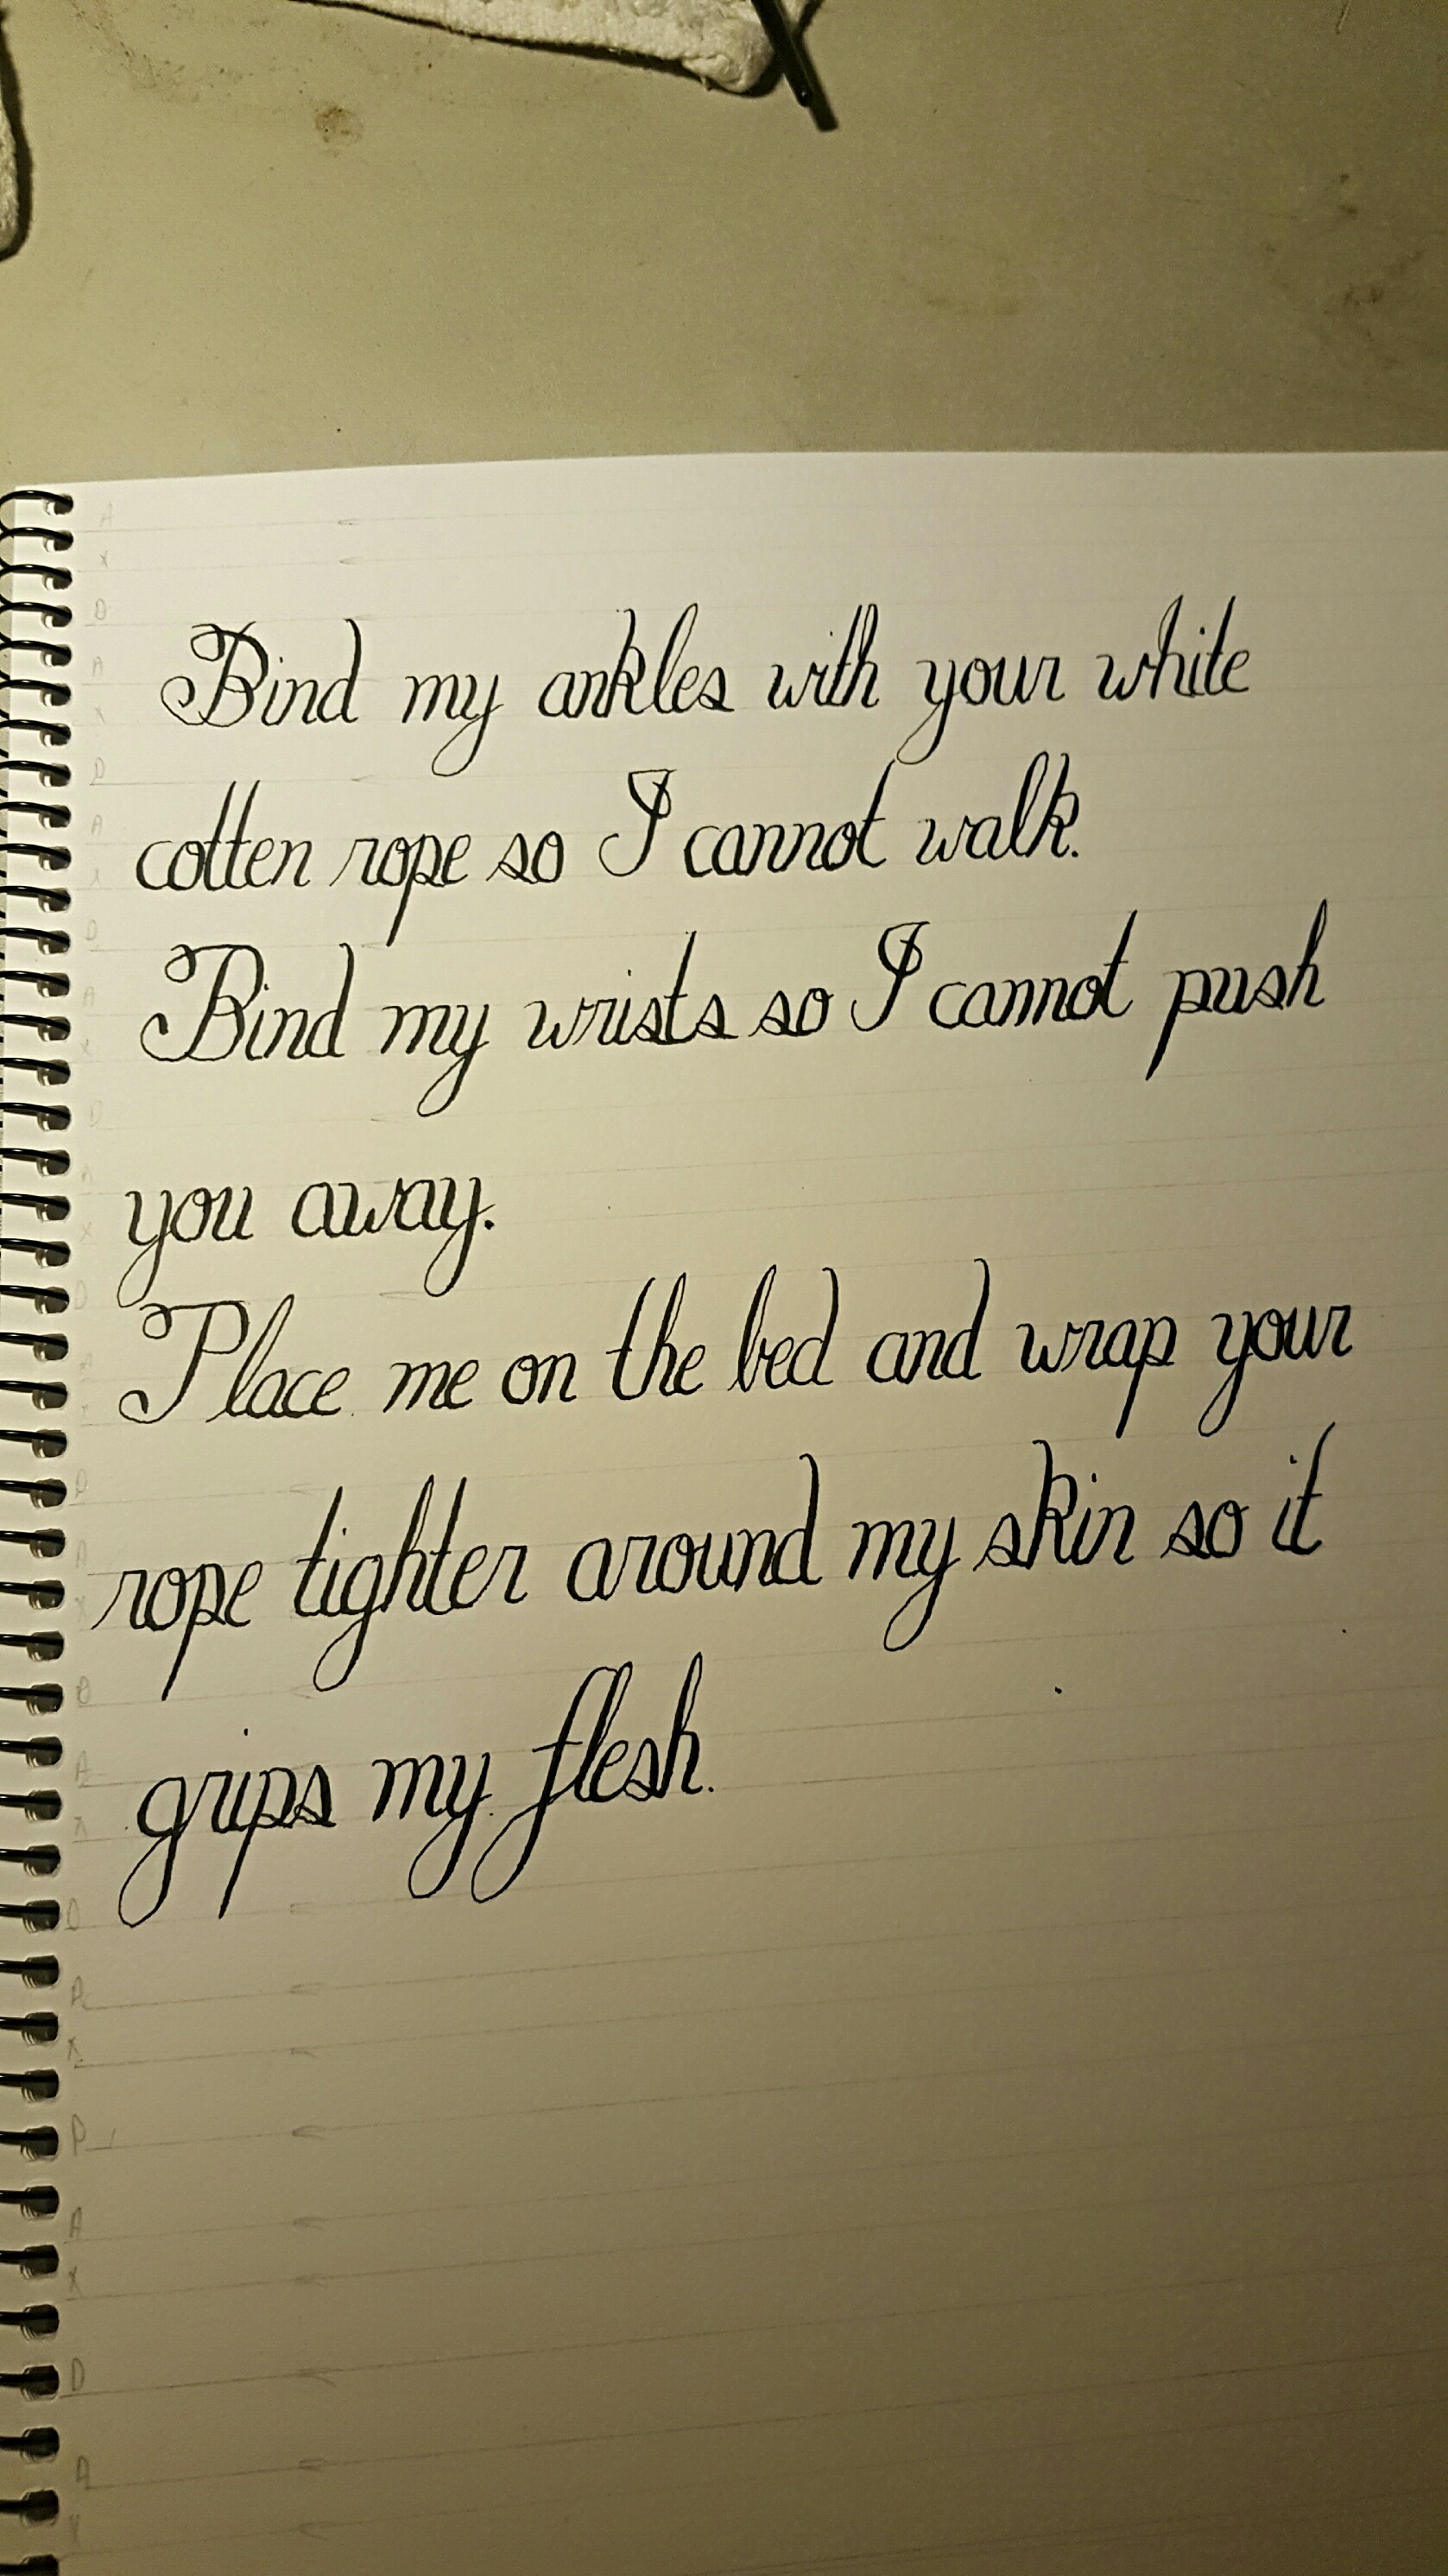 Bind my ankles with your white
cotten rope so I cannot walk.
Bind my wrists so I cannot push
you away.
Place me on the bed and wrap your
rope tighter around my skin so it
grips my flesh.